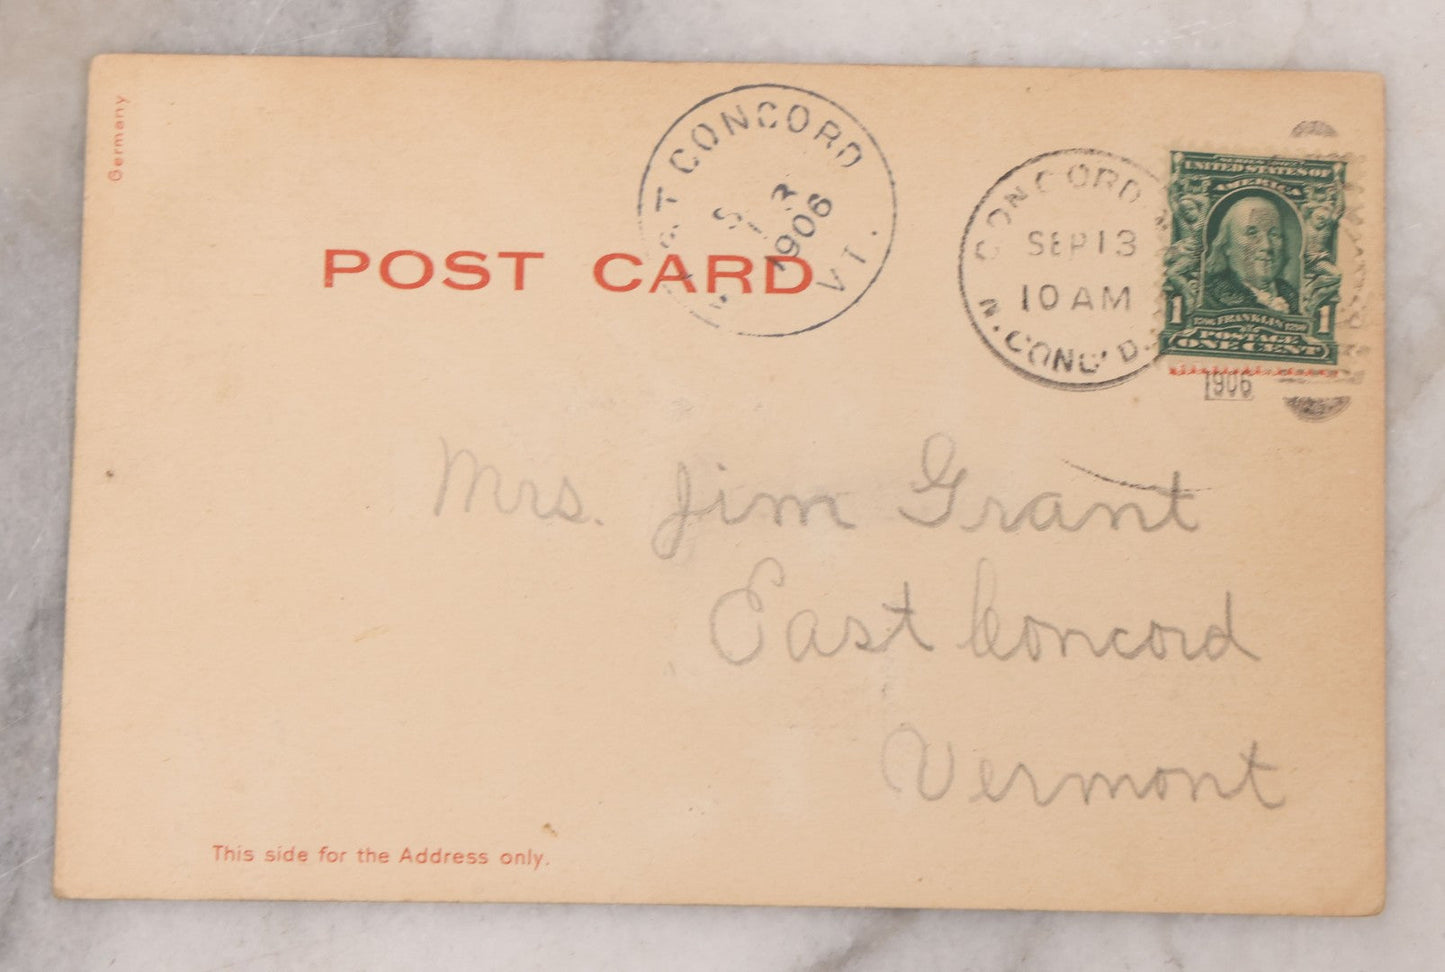 Germany
POST CARD
CONCORD
S 13
1906
VT.
CONCORD
SEP 13
10 AM
N.
1906
SERIES 1902
UNITED STATES OF
AMERICA
1 1
FRANKLIN
POSTAGE
ONE CENT
Mrs. Jim Grant
East Concord
Vermont
This side for the Address only.